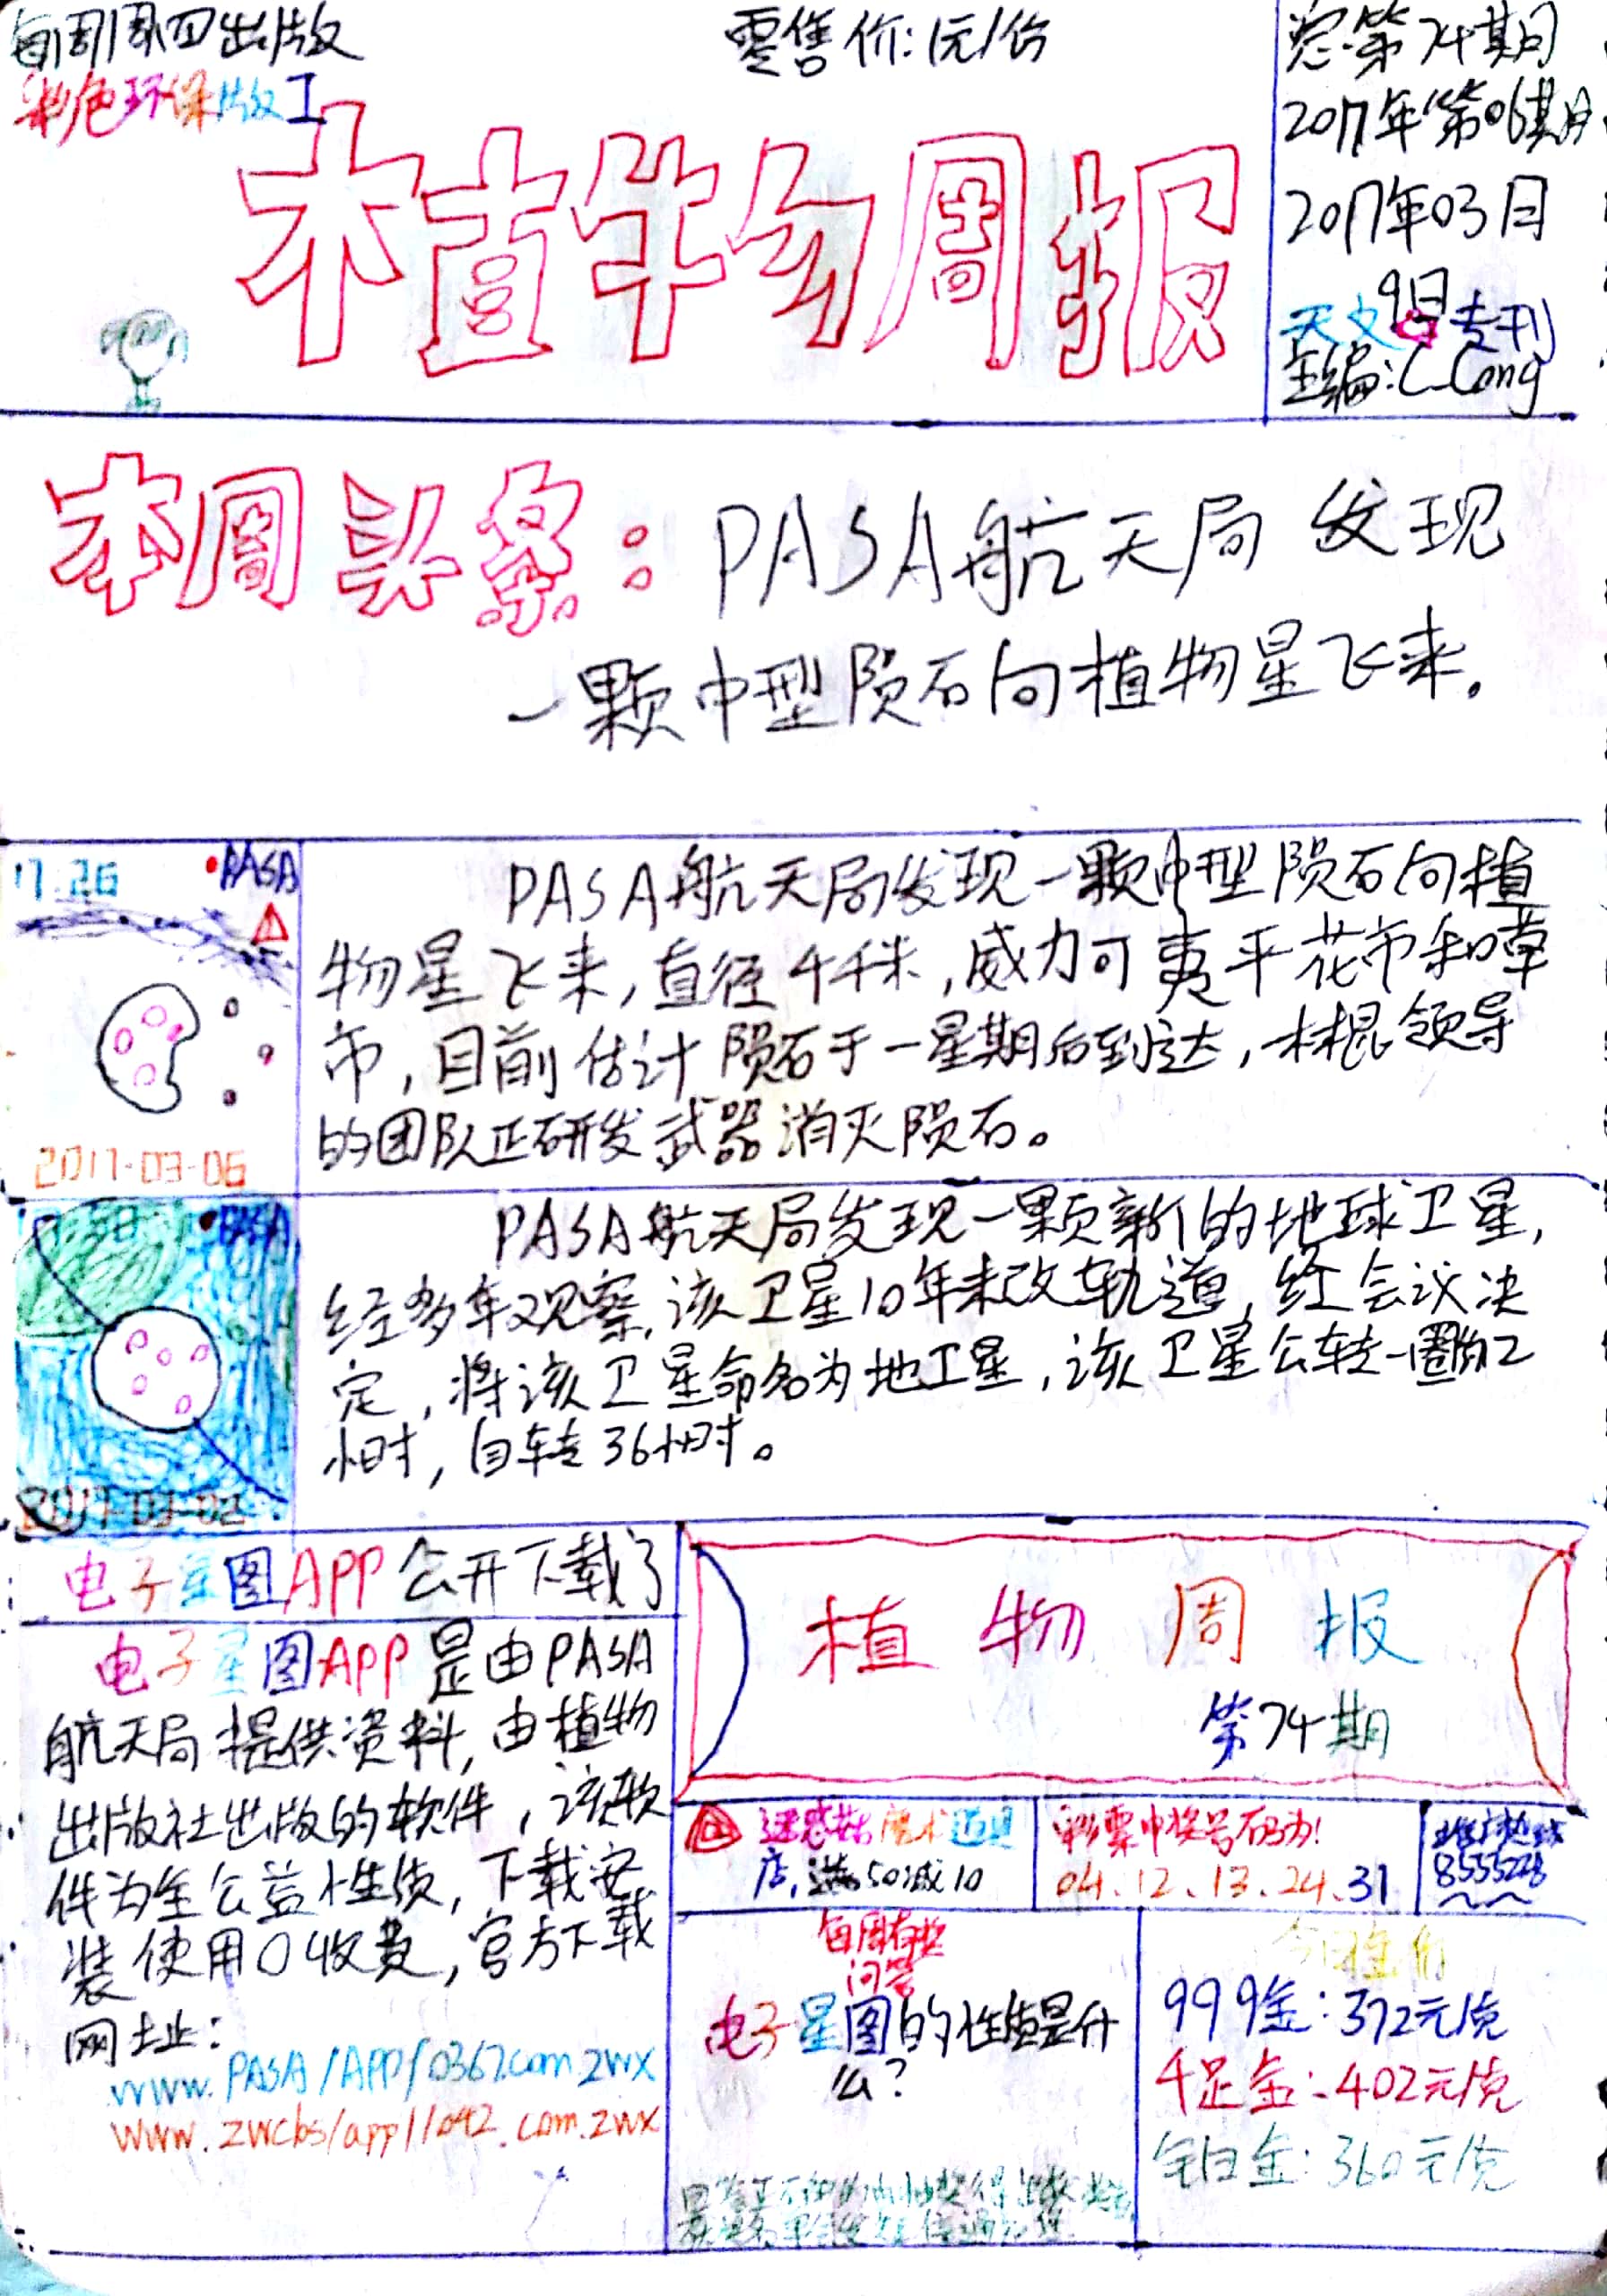 每周周四出版
零售价:1元/份
彩色环保版工
植物周报
总第74期
2017年第06期
2017年03月
9日
天文专刊
主编:C_Cong
本周头条:PASA航天局发现
一颗中型陨石向植物星飞来。
17:26
PASA
2017-03-06
PASA航天局发现一颗中型陨石向植
物星飞来,直径4千米,威力可夷平花市和草
市,目前估计陨石于一星期后到达,林根领导
的团队正研发武器消灭陨石。
PASA
2017-03-02
PASA航天局发现一颗新的地球卫星,
经多年观察,该卫星10年未改轨道,经会议决
定,将该卫星命名为地卫星,该卫星公转一圈
小时,自转36小时。
电子星图APP公开下载了
电子星图APP是由PASA
航天局提供资料,由植物
出版社出版的软件,该软
件为全公益性质,下载安
装使用0收费,官方下载
网址:
www.PASA/APP/0367.com.zwx
www.zwcbs/app/1042.com.zwx
植物周报
第74期
迷惑菇魔术道具
店,满50减10
彩票中奖号码为!
04.12.13.24.31
8535228
每周有奖
问答
电子星图的性质是什
么?
今日金价
999金:372元/克
千足金:402元/克
白金:360元/克